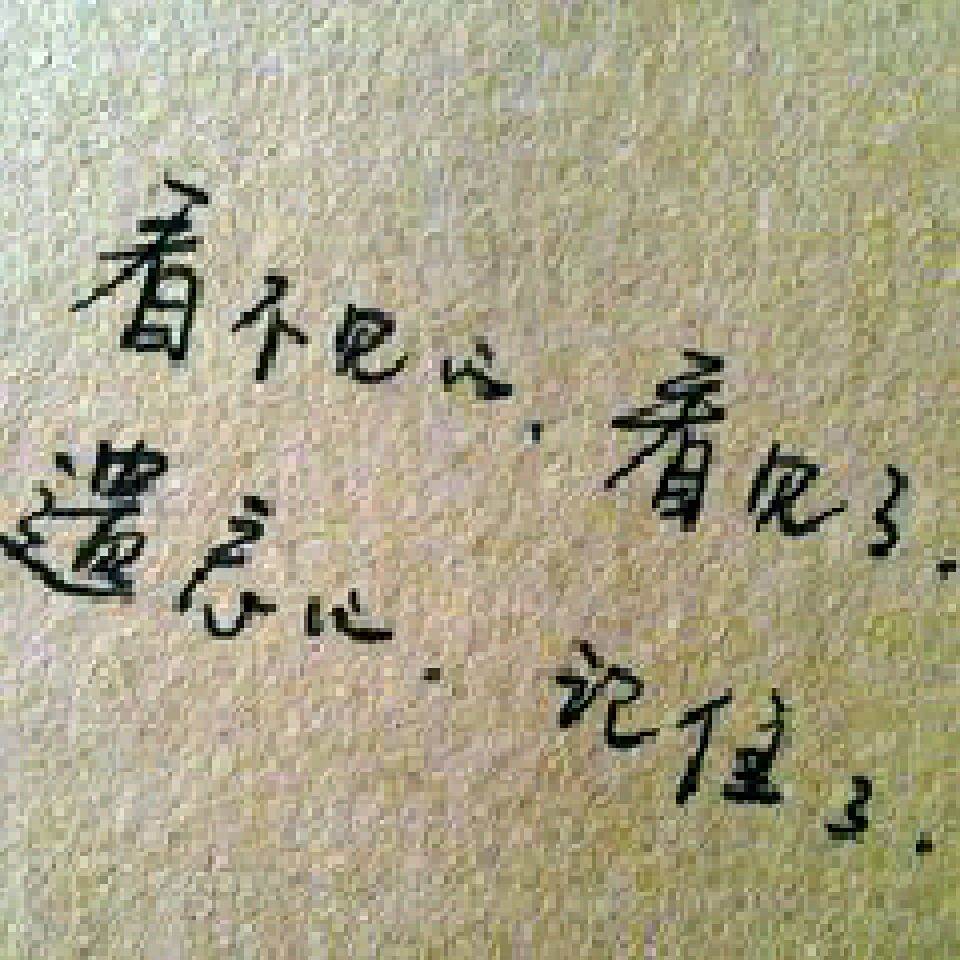 看不见的. 看见了.
遗忘的. 记住了.